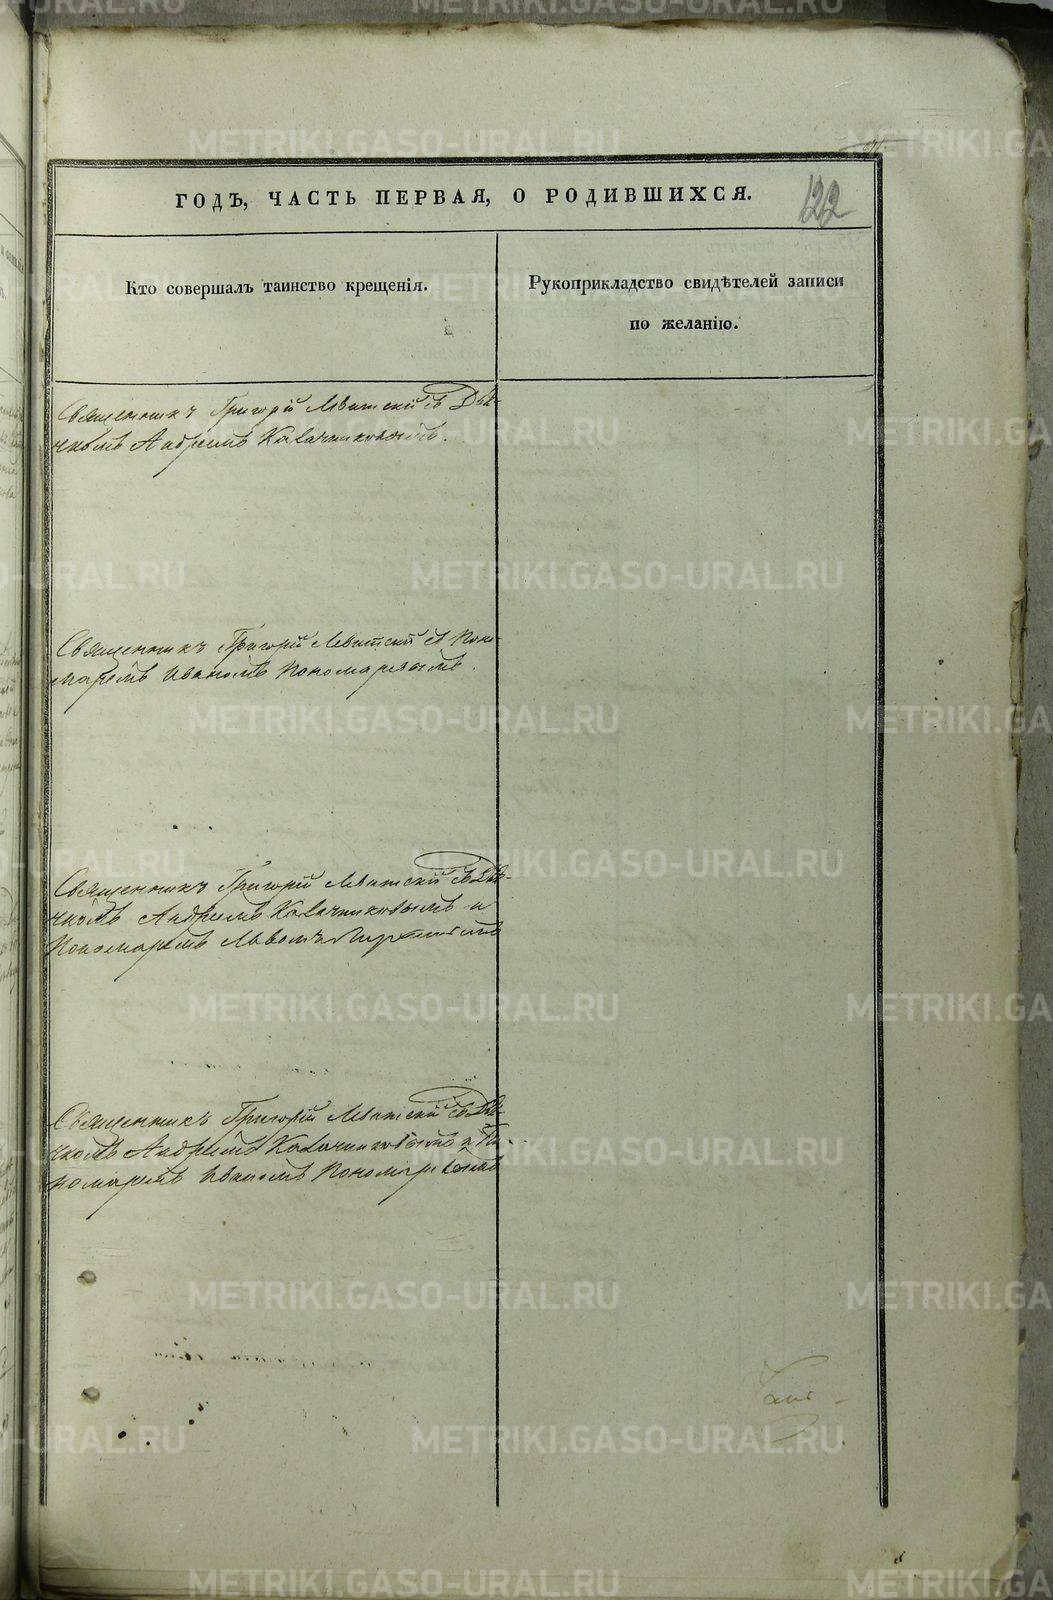 ГОДЪ, ЧАСТЬ ПЕРВАЯ, О РОДИВШИХСЯ.
122
Кто совершалъ таинство крещенія.
Рукоприкладство свидѣтелей записи
по желанію.
Священникъ Григорій Левитскій съ Дья-
чкомъ Андреемъ Калачниковымъ.
Священникъ Григорій Левитскій съ Поно-
маремъ Иваномъ Пономаревымъ.
Священникъ Григорій Левитскій съ Дья-
чкомъ Андреемъ Калачниковымъ и
Пономаремъ Львомъ
Священникъ Григорій Левитскій съ Дья-
чкомъ Андреемъ Калачниковымъ и По-
номаремъ Иваномъ Пономаревымъ
METRIKI.GASO-URAL.RU